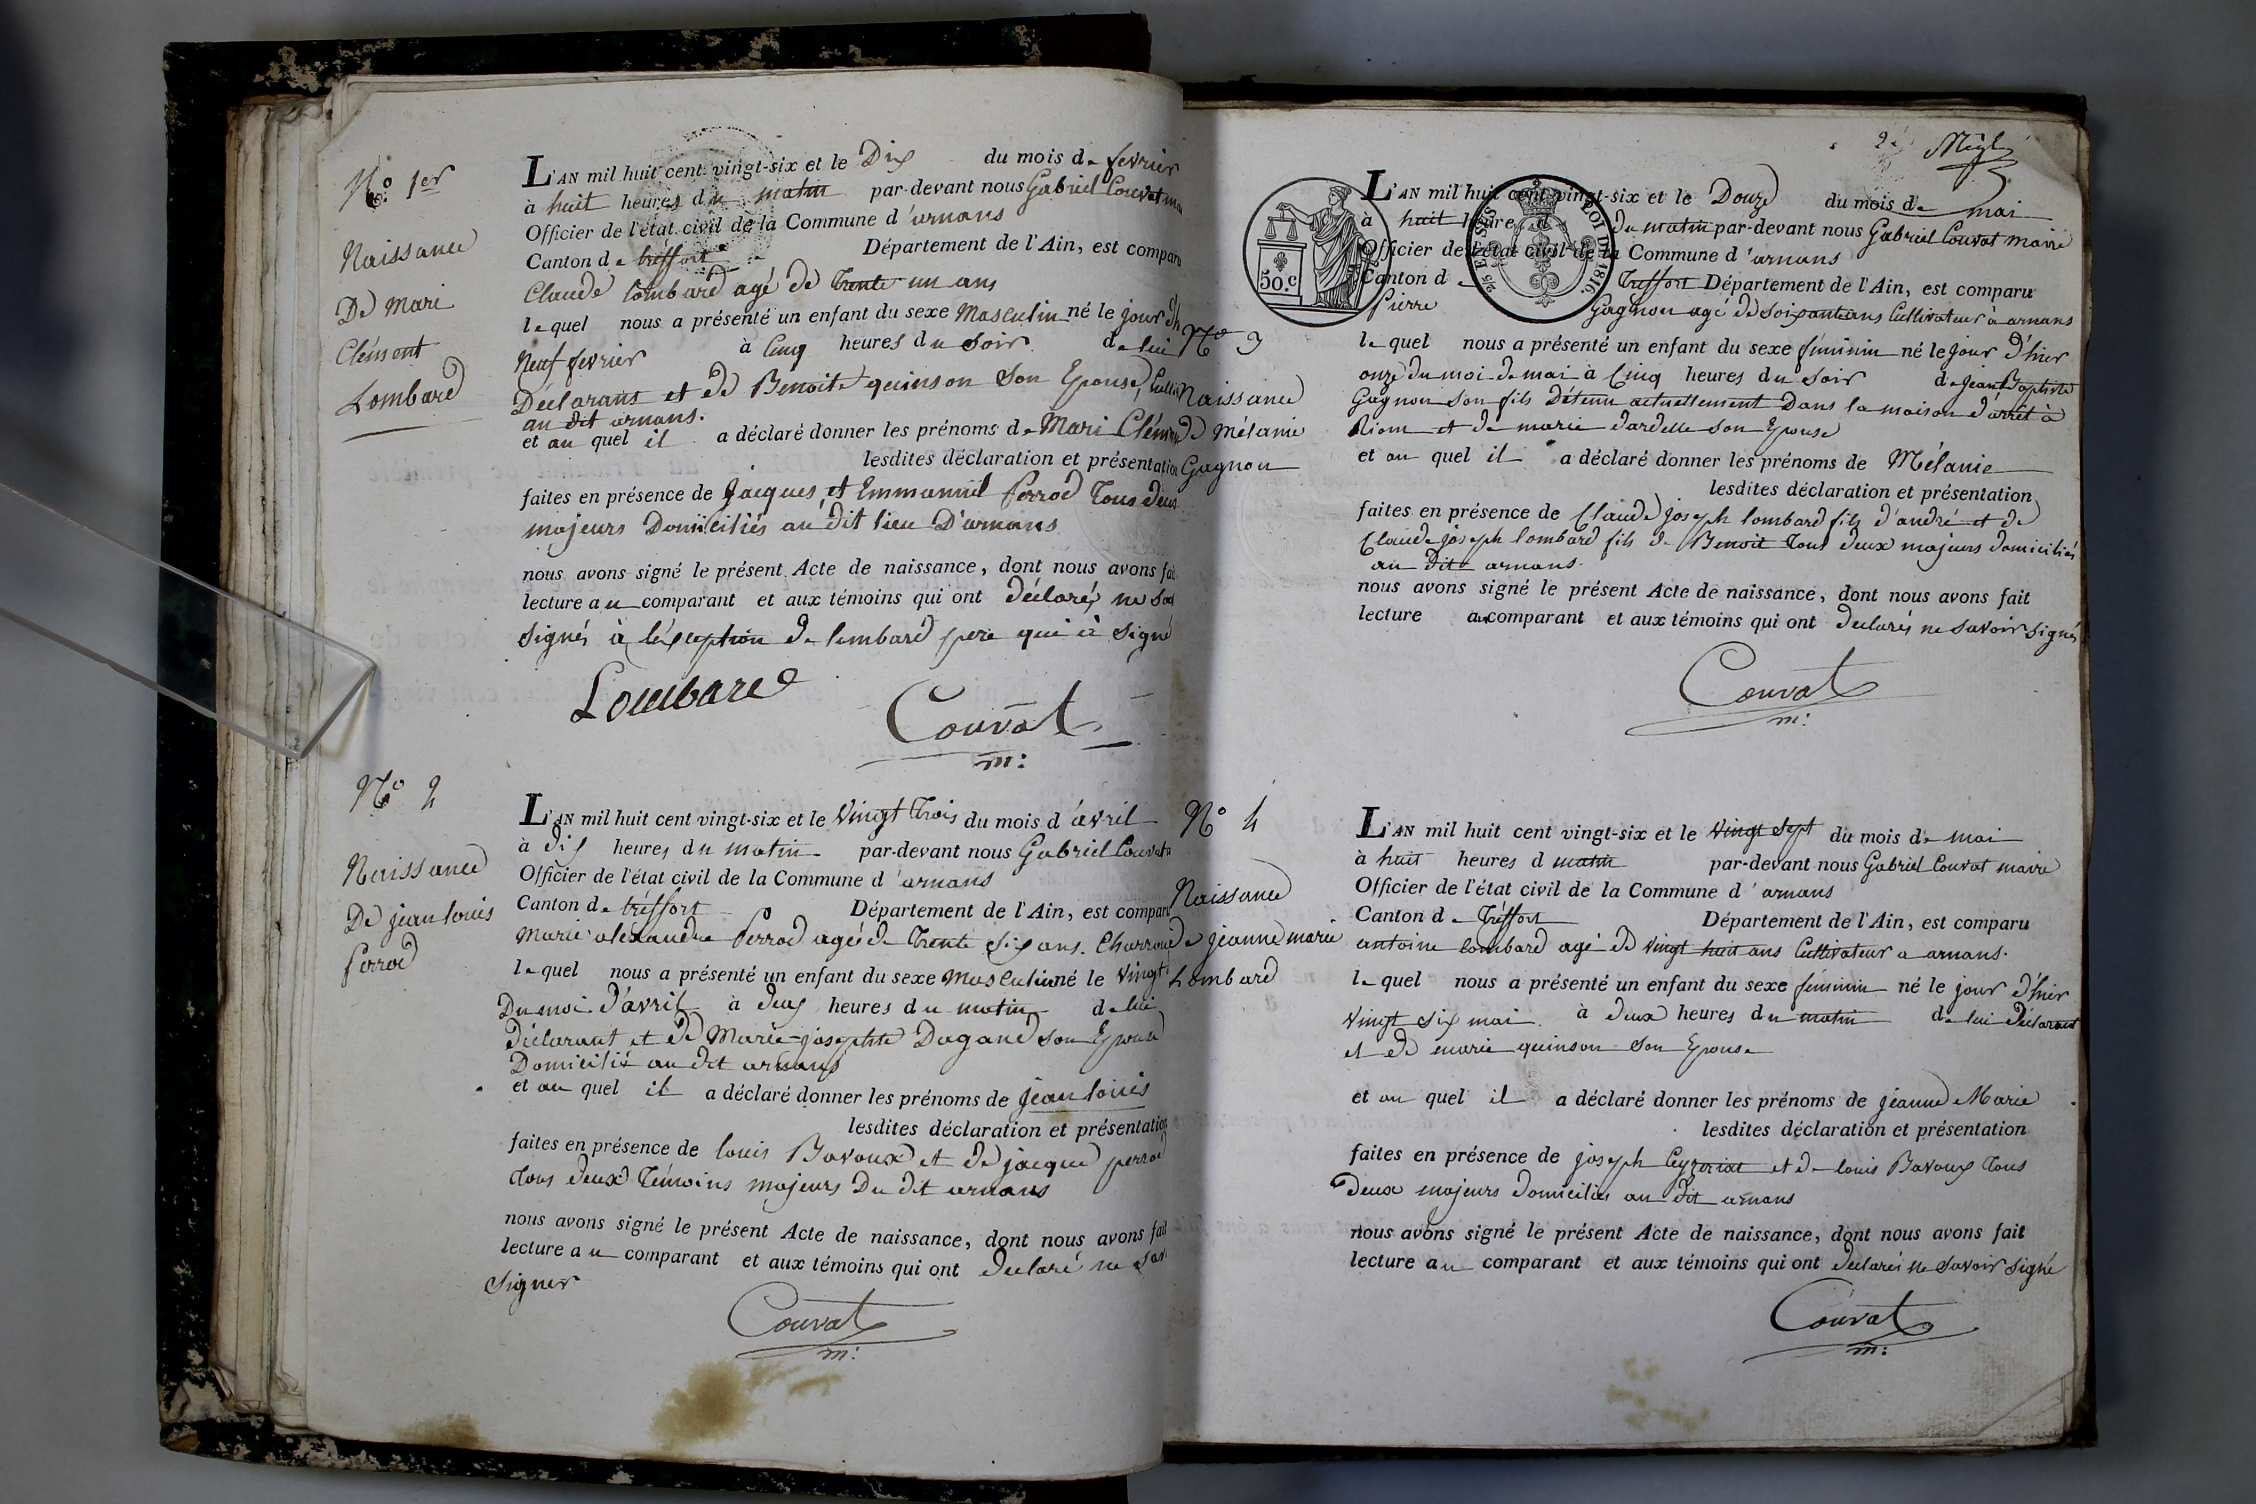 N.º 1er
Naissance
De Mari
Clément
Lombard
L'AN mil huit cent vingt-six et le Dix du mois de fevrier
à huit heures du matin par-devant nous Gabriel Couvat
Officier de l'état civil de la Commune d'arnans
Canton de tréffort Département de l'Ain, est comparu
Claude lombard agé de Trente un ans
lequel nous a présenté un enfant du sexe Masculin né le jour
Neuf fevrier à Cinq heures du soir de lui
Déclarant et de Benoite quinson Son Epouse,
au dit arnans.
et au quel il a déclaré donner les prénoms de Mari Clément
lesdites déclaration et présentation
faites en présence de Jacques, et Emmanuel Perrod Tous deux
majeurs Domiciliés au dit lieu D'arnans
nous avons signé le présent Acte de naissance, dont nous avons fait
lecture au comparant et aux témoins qui ont déclarés ne
signés à l'éxception de lombard pere qui à signé
Lombard
Couvat
m:
N.º 2
Naissance
De jean louis
Perrod
L'AN mil huit cent vingt-six et le Vingt Trois du mois d'avril
à dix heures du matin par-devant nous Gabriel Couvat
Officier de l'état civil de la Commune d'arnans
Canton de tréffort Département de l'Ain, est comparu
Marie alexandre Perrod agé de Trente six ans.
lequel nous a présenté un enfant du sexe masculin né le Vingt
Du moi d'avril à deux heures du matin de lui
Déclarant et de Marie josephte Dagand son Epouse
Domicilié au dit arnans
et au quel il a déclaré donner les prénoms de jean louis
lesdites déclaration et présentation
faites en présence de louis Bavoux et de jacque perrod
Tous deux Témoins majeurs Du dit arnans
nous avons signé le présent Acte de naissance, dont nous avons fait
lecture au comparant et aux témoins qui ont déclaré ne
signer
Couvat
m:
2e
50.c
LOI DE 1816.
N.º 3
Naissance
de Mélanie
Gagnon
L'AN mil huit cent vingt-six et le Douze du mois de mai
à huit heures du matin par-devant nous Gabriel Couvat maire
Officier de l'état civil de la Commune d'arnans
Canton de Treffort Département de l'Ain, est comparu
Pierre Gagnon agé de soixante ans Cultivateur à arnans
lequel nous a présenté un enfant du sexe féminin né le jour d'hier
onze du moi de mai à Cinq heures du soir de jean Baptiste
Gagnon son fils Détenu actuellement Dans la maison d'arrêt à
Riom et de marie dardelle son Epouse
et au quel il a déclaré donner les prénoms de Mélanie
lesdites déclaration et présentation
faites en présence de Claude joseph lombard fils d'andré et de
Claude joseph lombard fils de Benoit Tous deux majeurs domiciliés
au dit arnans.
nous avons signé le présent Acte de naissance, dont nous avons fait
lecture au comparant et aux témoins qui ont declarés ne savoir signés
Couvat
m:
N.º 4
Naissance
de jeanne marie
Lombard
L'AN mil huit cent vingt-six et le Vingt Sept du mois de mai
à huit heures d matin par-devant nous Gabriel Couvat maire
Officier de l'état civil de la Commune d'arnans
Canton de Tréffort Département de l'Ain, est comparu
antoine lombard agé de vingt huit ans Cultivateur a arnans.
lequel nous a présenté un enfant du sexe féminin né le jour d'hier
Vingt six mai à deux heures du matin de lui Déclarant
et de marie quinson son Epouse
et au quel il a déclaré donner les prénoms de jeanne Marie
lesdites déclaration et présentation
faites en présence de joseph Ceyzeriat et de louis Bavoux Tous
Deux majeurs domiciliés au dit arnans
nous avons signé le présent Acte de naissance, dont nous avons fait
lecture au comparant et aux témoins qui ont déclarés ne savoir signé
Couvat
m: